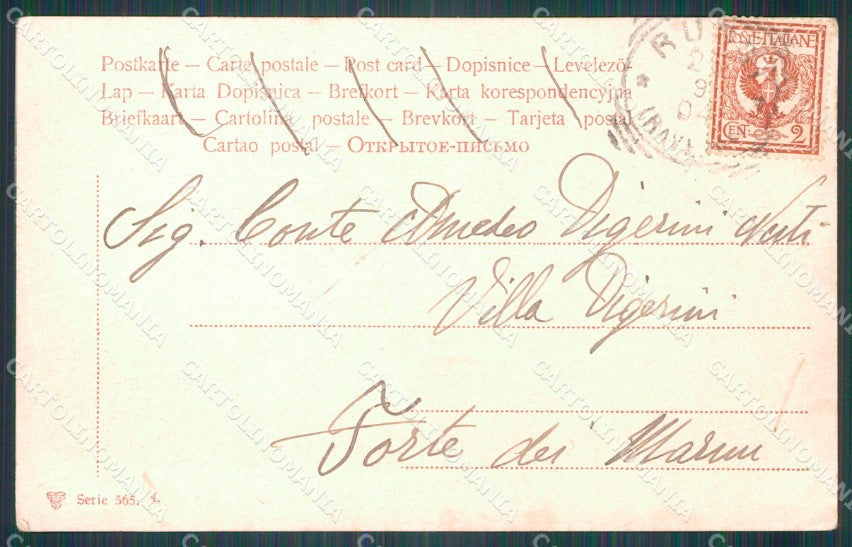 Postkarte – Carte postale – Post card – Dopisnice – Levelezö-
Lap – Karta Dopisnica – Brefkort – Karta korespondencyjna
Briefkaart – Cartolina postale – Brevkort – Tarjeta postal
Cartao postal – Открытое-письмо
POSTE ITALIANE
CEN: 2
RU
2
9
04
(RAV
Sig. Conte Amedeo Digerini Nuti
Villa Digerini
Forte dei Marmi
Serie 565. 4.
CARTOLINOMANIA